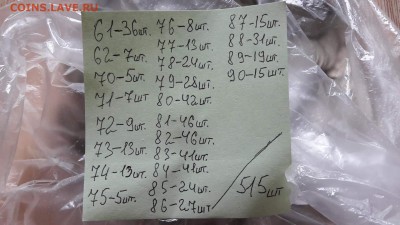 COINS.LAVE.RU
61-36шт.
62-7шт.
70-5шт.
71-7шт
72-9шт.
73-13шт.
74-13шт.
75-5шт.
76-8шт.
77-13шт.
78-24шт.
79-28шт.
80-42шт.
81-46шт.
82-46шт.
83-41шт.
84-41шт.
85-24шт.
86-27шт
87-15шт.
88-31шт.
89-19шт.
90-15шт
515шт